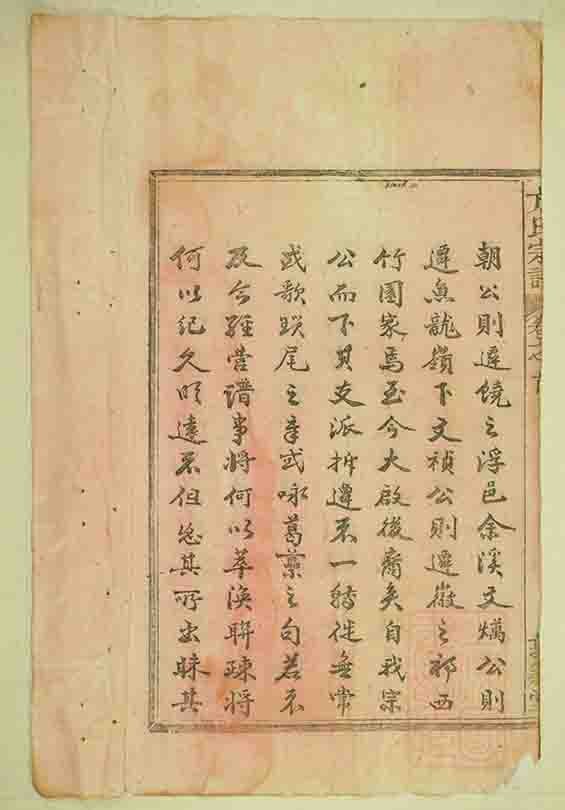 方氏宗譜 卷之首
朝公則遷饒之浮邑余溪文爦公則
遷魚龍嶺下文禎公則遷嶶之祁西
竹園家焉至今大啟後裔矣自我宗
公而下其支派拆遷不一轉徙無常
或歌瑣尾之章或咏葛藟之句若不
及今經營譜事將何以萃渙聯疎將
何以紀久明遠不但忘其所出昧其